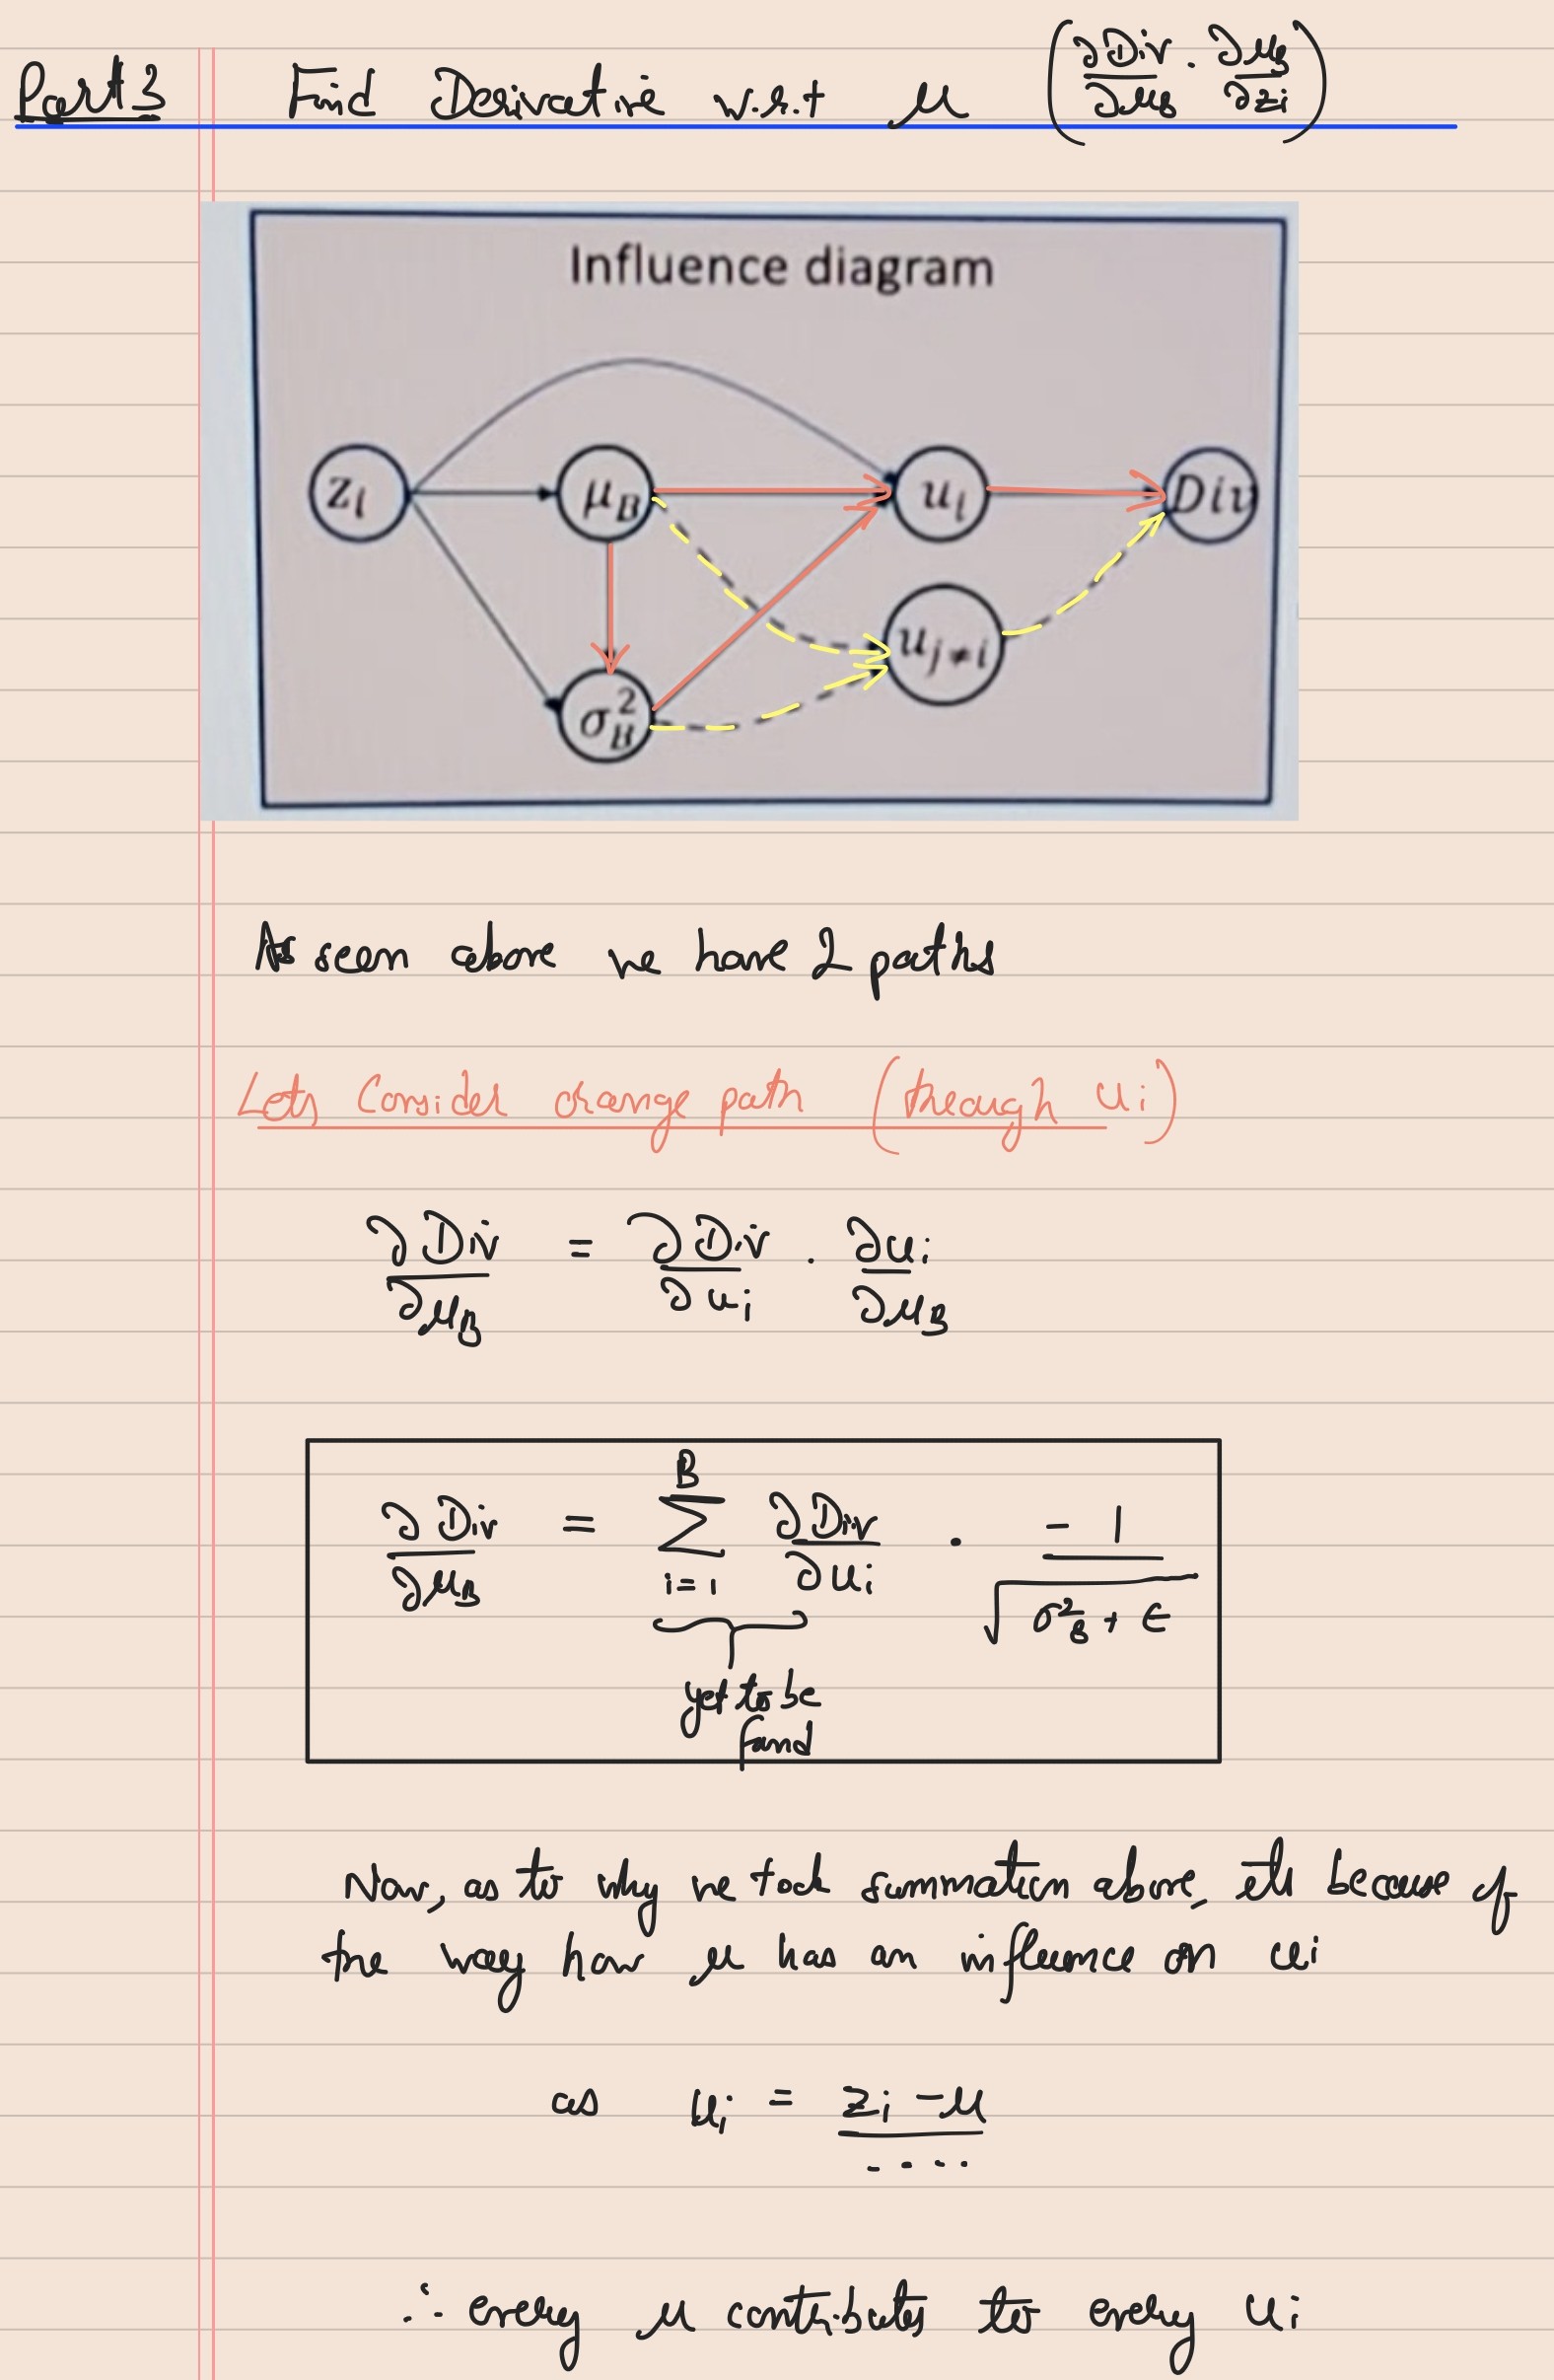 Part 3 Find Derivative w.r.t μ (∂Div/∂μB . ∂μB/∂zi)
Influence diagram
zi μB ui Div
uj≠i
σ²B
As seen above we have 2 paths
Lets Consider orange path (through ui)
∂Div/∂μB = ∂Div/∂ui . ∂ui/∂μB
∂Div/∂μB = Σ i=1 B ∂Div/∂ui . -1/√(σ²B + ϵ)
yet to be
found
Now, as to why we took summation above, its because of
the way how μ has an influence on ui
as ui = zi - μ
....
∴ every μ contributes to every ui